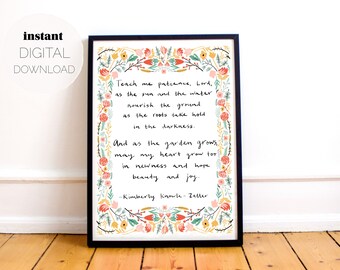 instant
DIGITAL
DOWNLOAD
Teach me patience, Lord,
as the sun and the water
nourish the ground
as the roots take hold
in the darkness.
And as the garden grows,
may my heart grow too
in newness and hope
beauty and joy.
-Kimberly Knowle-Zeller